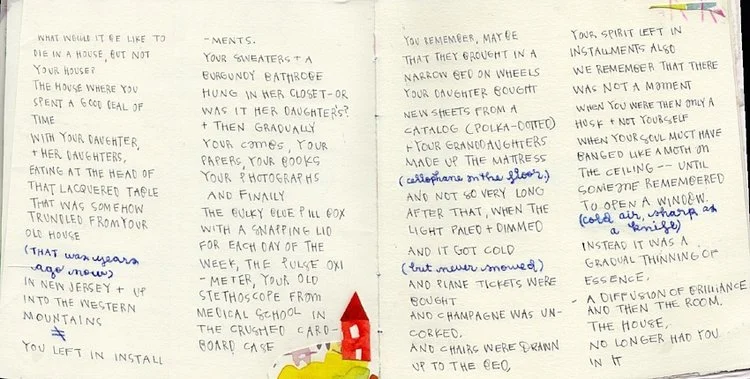 WHAT WOULD IT BE LIKE TO
DIE IN A HOUSE, BUT NOT
YOUR HOUSE?
THE HOUSE WHERE YOU
SPENT A GOOD DEAL OF
TIME
WITH YOUR DAUGHTER,
+ HER DAUGHTERS,
EATING AT THE HEAD OF
THAT LACQUERED TABLE
THAT WAS SOMEHOW
TRUNDLED FROM YOUR
OLD HOUSE
(THAT was years
ago now)
IN NEW JERSEY + UP
INTO THE WESTERN
MOUNTAINS
≠
YOU LEFT IN INSTALL
-MENTS.
YOUR SWEATERS + A
BURGUNDY BATHROBE
HUNG IN HER CLOSET-OR
WAS IT HER DAUGHTER'S?
+ THEN GRADUALLY
YOUR COMBS, YOUR
PAPERS, YOUR BOOKS
YOUR PHOTOGRAPHS
AND FINALLY
THE BULKY BLUE PILL BOX
WITH A SNAPPING LID
FOR EACH DAY OF THE
WEEK, THE PULSE OXI
-METER, YOUR OLD
STETHOSCOPE FROM
MEDICAL SCHOOL IN
THE CRUSHED CARD-
BOARD CASE
YOU REMEMBER, MAYBE
THAT THEY BROUGHT IN A
NARROW BED ON WHEELS
YOUR DAUGHTER BOUGHT
NEW SHEETS FROM A
CATALOG (POLKA-DOTTED)
+ YOUR GRANDDAUGHTERS
MADE UP THE MATTRESS
(cellophane on the floor)
AND NOT SO VERY LONG
AFTER THAT, WHEN THE
LIGHT PALED + DIMMED
AND IT GOT COLD
(but never snowed)
AND PLANE TICKETS WERE
BOUGHT
AND CHAMPAGNE WAS UN-
CORKED,
AND CHAIRS WERE DRAWN
UP TO THE BED,
YOUR SPIRIT LEFT IN
INSTALLMENTS ALSO
WE REMEMBER THAT THERE
WAS NOT A MOMENT
WHEN YOU WERE THEN ONLY A
HUSK + NOT YOURSELF
WHEN YOUR SOUL MUST HAVE
BANGED LIKE A MOTH ON
THE CEILING -- UNTIL
SOMEONE REMEMBERED
TO OPEN A WINDOW.
(cold air, sharp as
a knife)
INSTEAD IT WAS A
GRADUAL THINNING OF
ESSENCE,
- A DIFFUSION OF BRILLIANCE
AND THEN THE ROOM,
THE HOUSE,
NO LONGER HAD YOU
IN IT